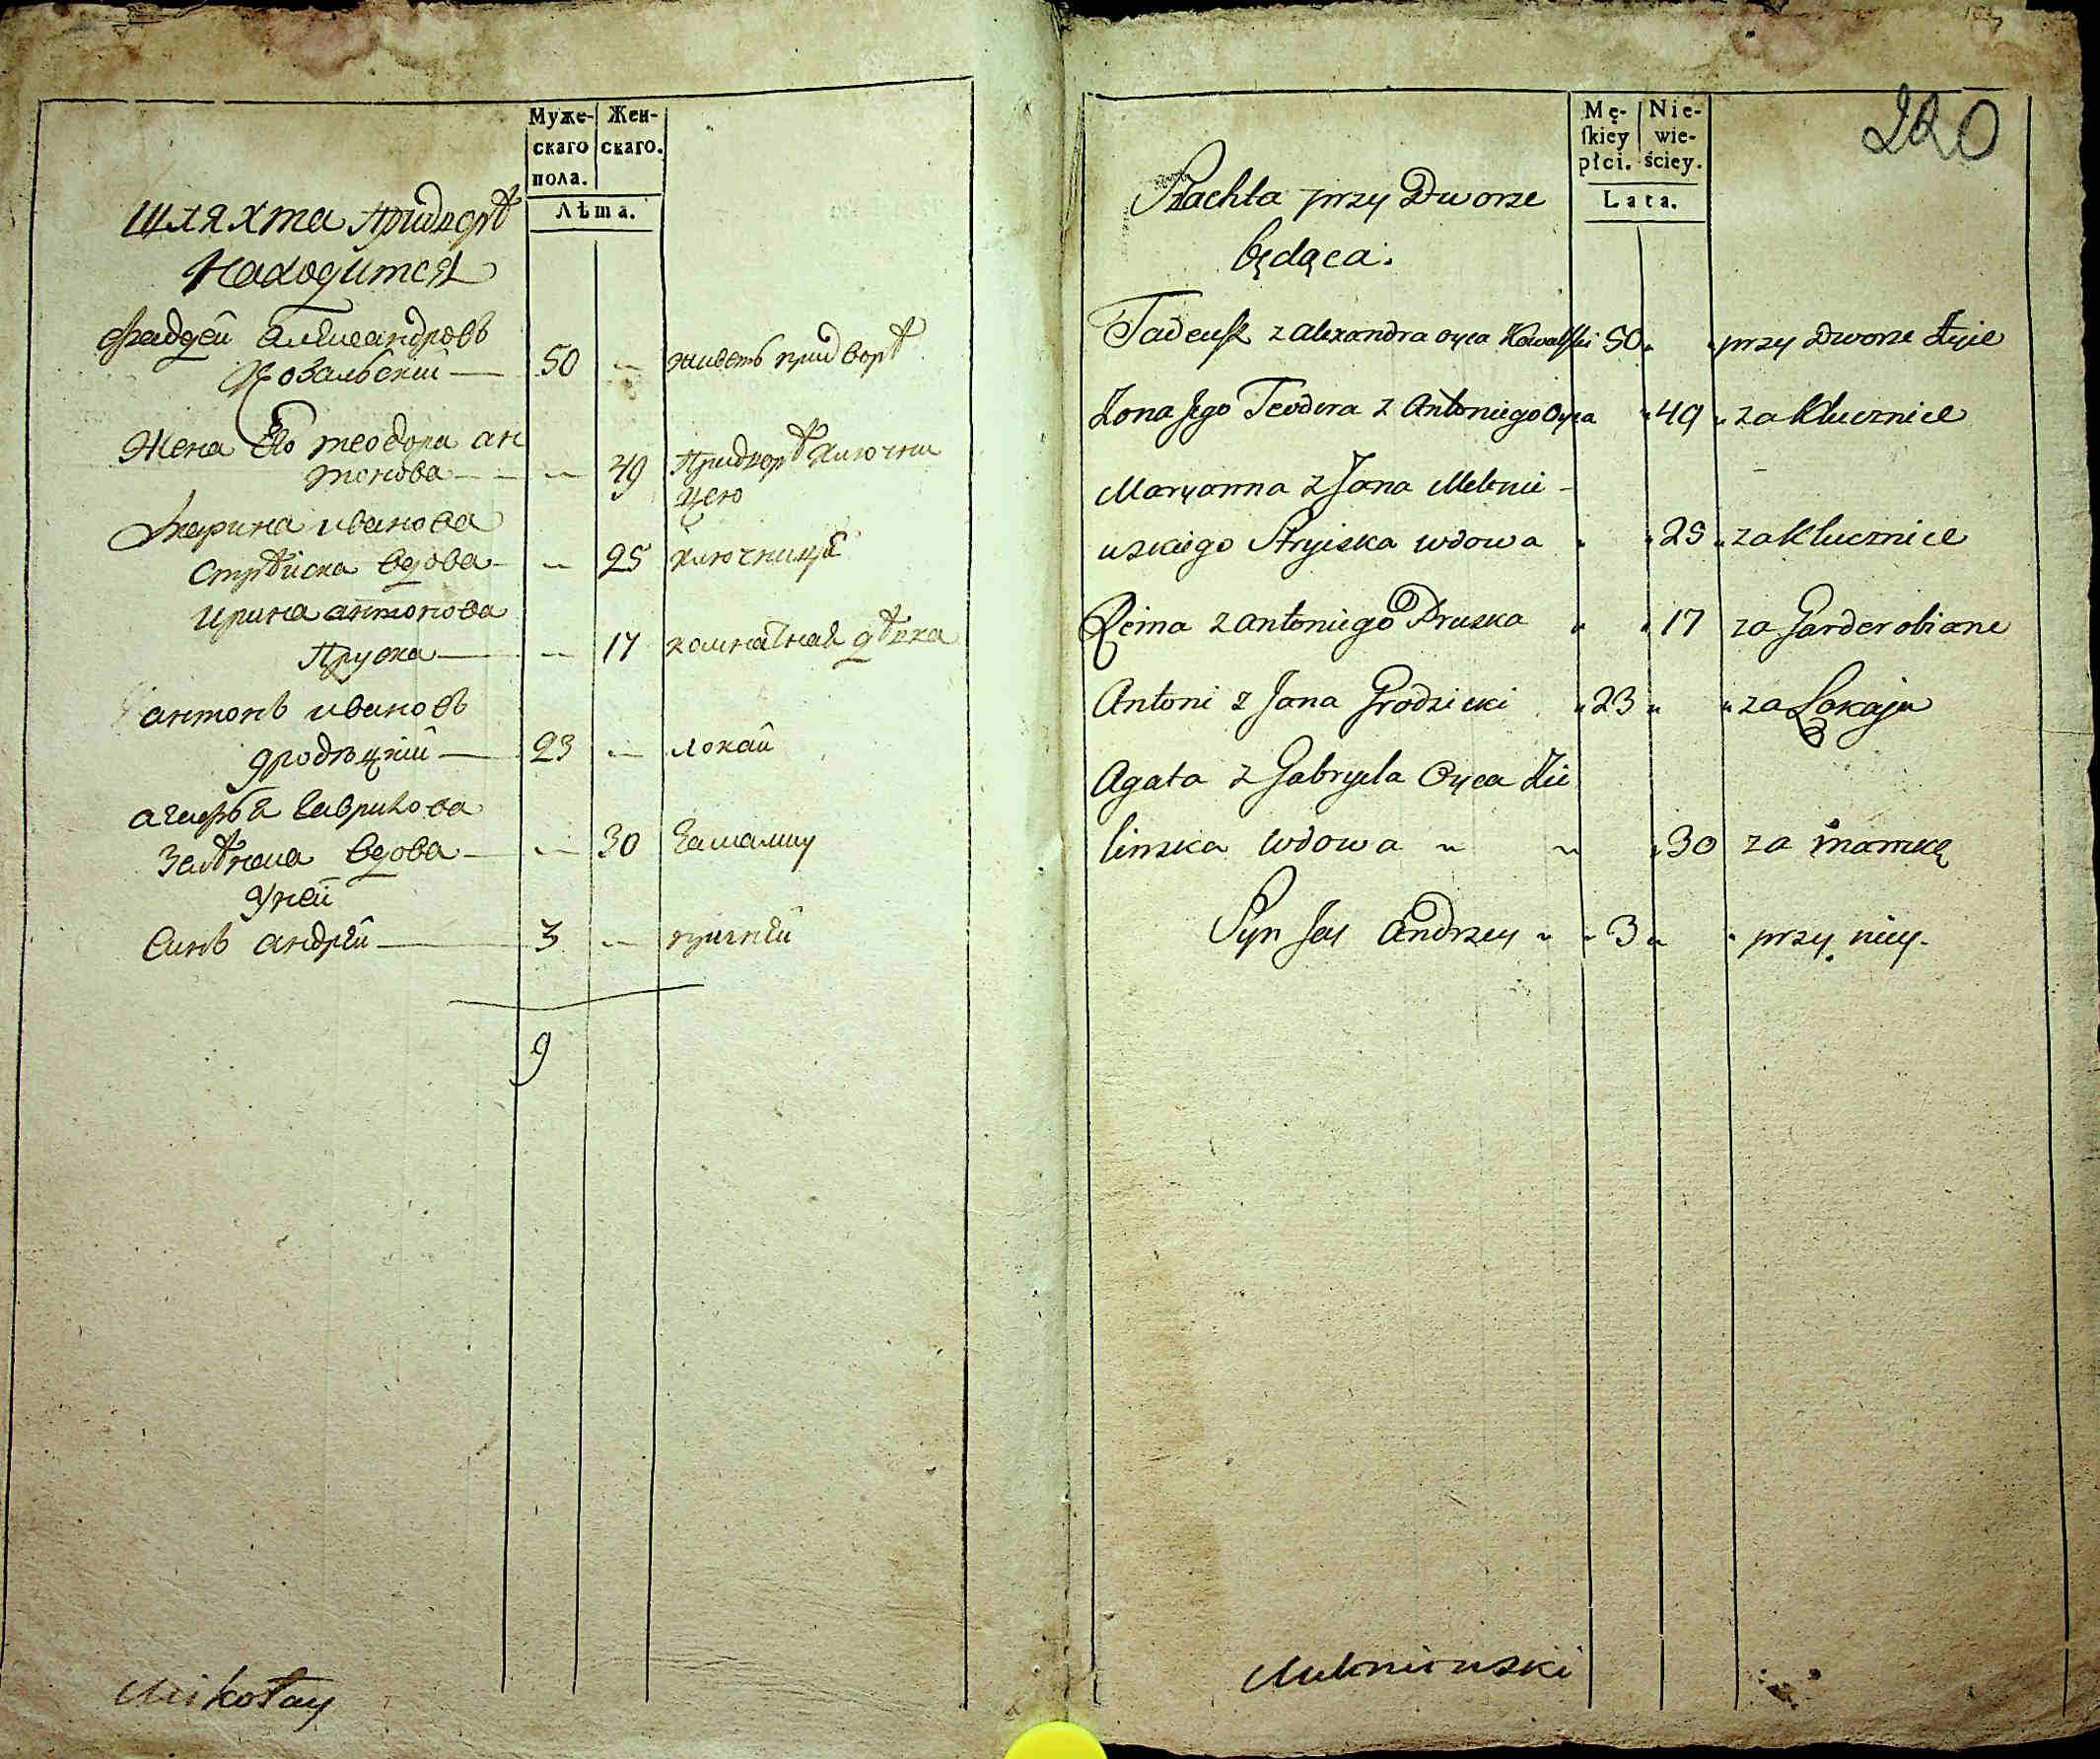 Муже-
скаго
пола.
Жен-
скаго.
Лѣта.
Шляхта придворѣ
Находится
Фаддей Александровъ
Ковальскій — 50 — живетъ при дворѣ
Жена Его теодора ан
тонова — — 49 Придворѣ ключни
цею
Марина иванова
Стрѣйска вдова — — 25 ключницей
Ирина антонова
Пруска — — 17 комнатная дѣвка
антонъ ивановъ
гродзѣцкій — 23 — локай
агафья гаврилова
Зелѣнска вдова — — 30 замамку
Унеи
Синъ андрѣй — 3 — принѣй
9
Mikołay
220
Mę-
ſkiey
płci.
Nie-
wie-
ściey.
Lata.
Szlachta przy Dworze
będąca.
Tadeusz z Alexandra oyca Kowalski 50 „ „ przy Dworze żyie
Żona Jego Teodora z Antoniego Oyca „ 49 „ za Klucznice
Maryanna z Jana Melenie-
wskiego Stryiska wdowa „ „ 25 „ za Klucznice
Reina z antoniego Pruska „ „ 17 za Garderobiane
Antoni z Jana Grodzicki „ 23 „ „ za Lokaja
Agata z Gabryela Oyca Zie
linska wdowa „ „ „ 30 za mamkę
Syn Jey Andrzey „ „ 3 „ „ przy niey.
Meleniewski